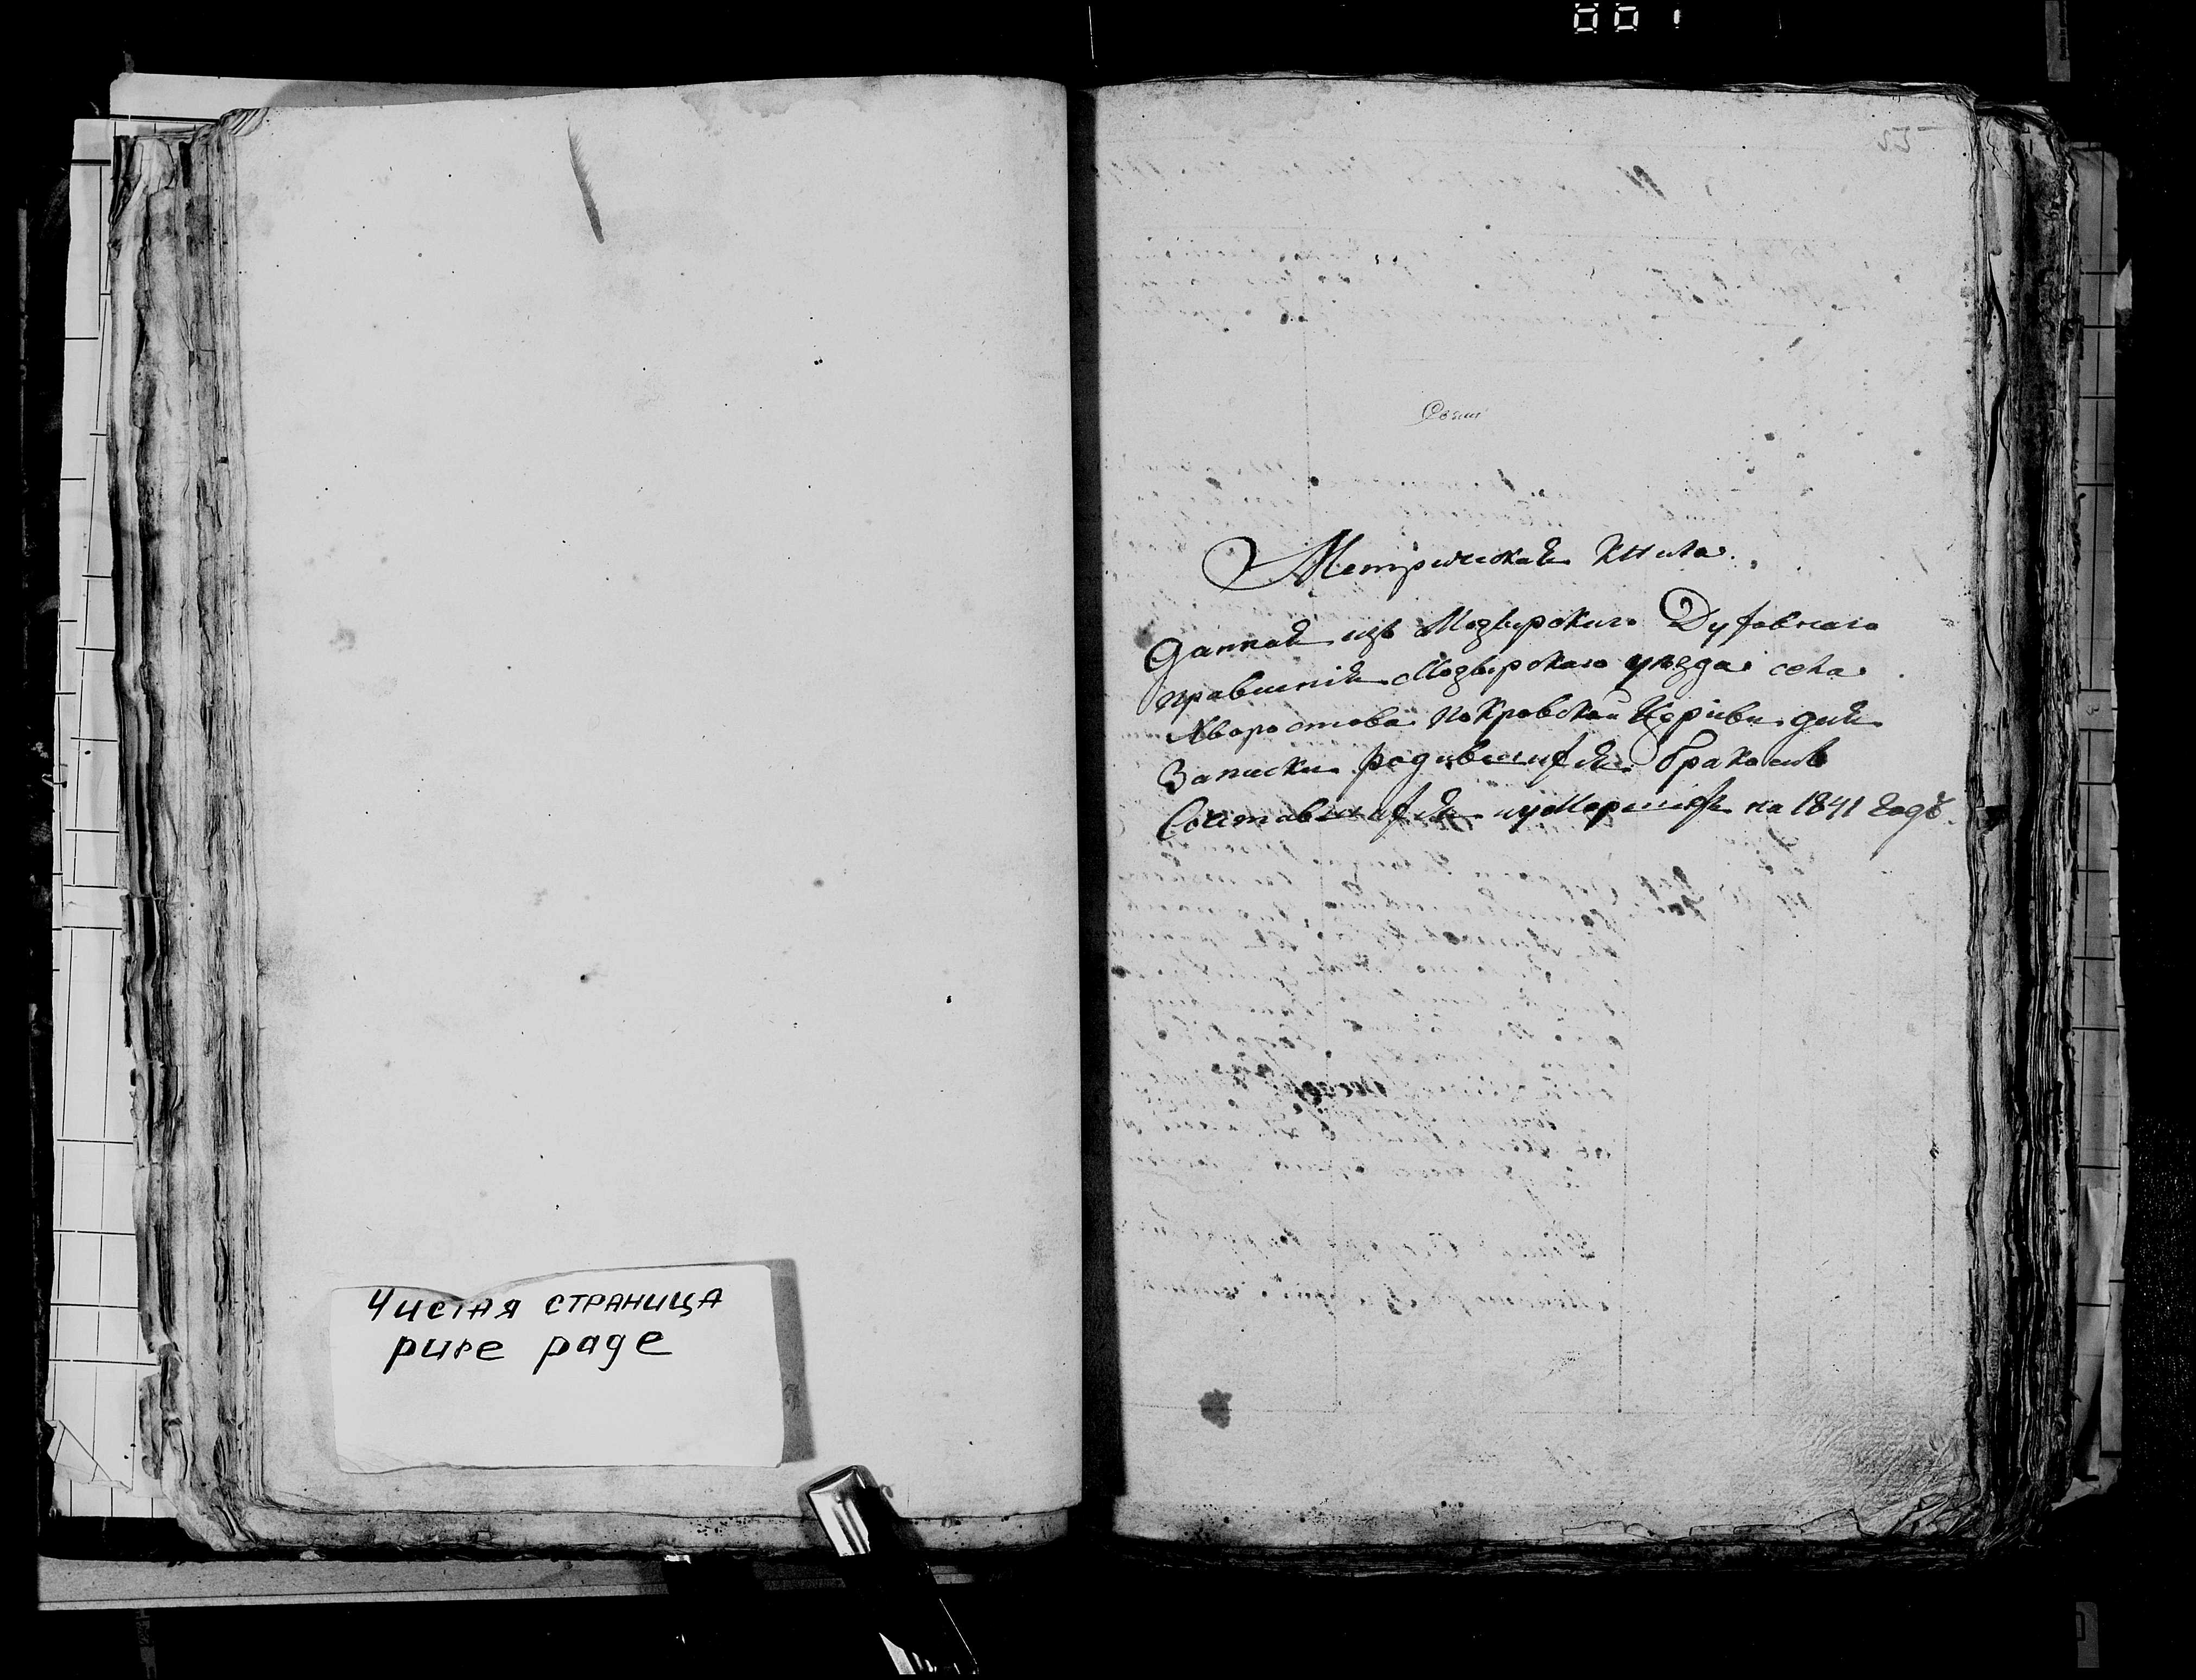 001
Чистая страница
pure page
Метрическая Книга
Данная изъ Мозырскаго Духовнаго
правленія Мозырскаго уѣзда села
Хворостова Покровской Церкви для
Записки родившихся бракомъ
Сочетавшихся иумершихъ на 1841 годъ.